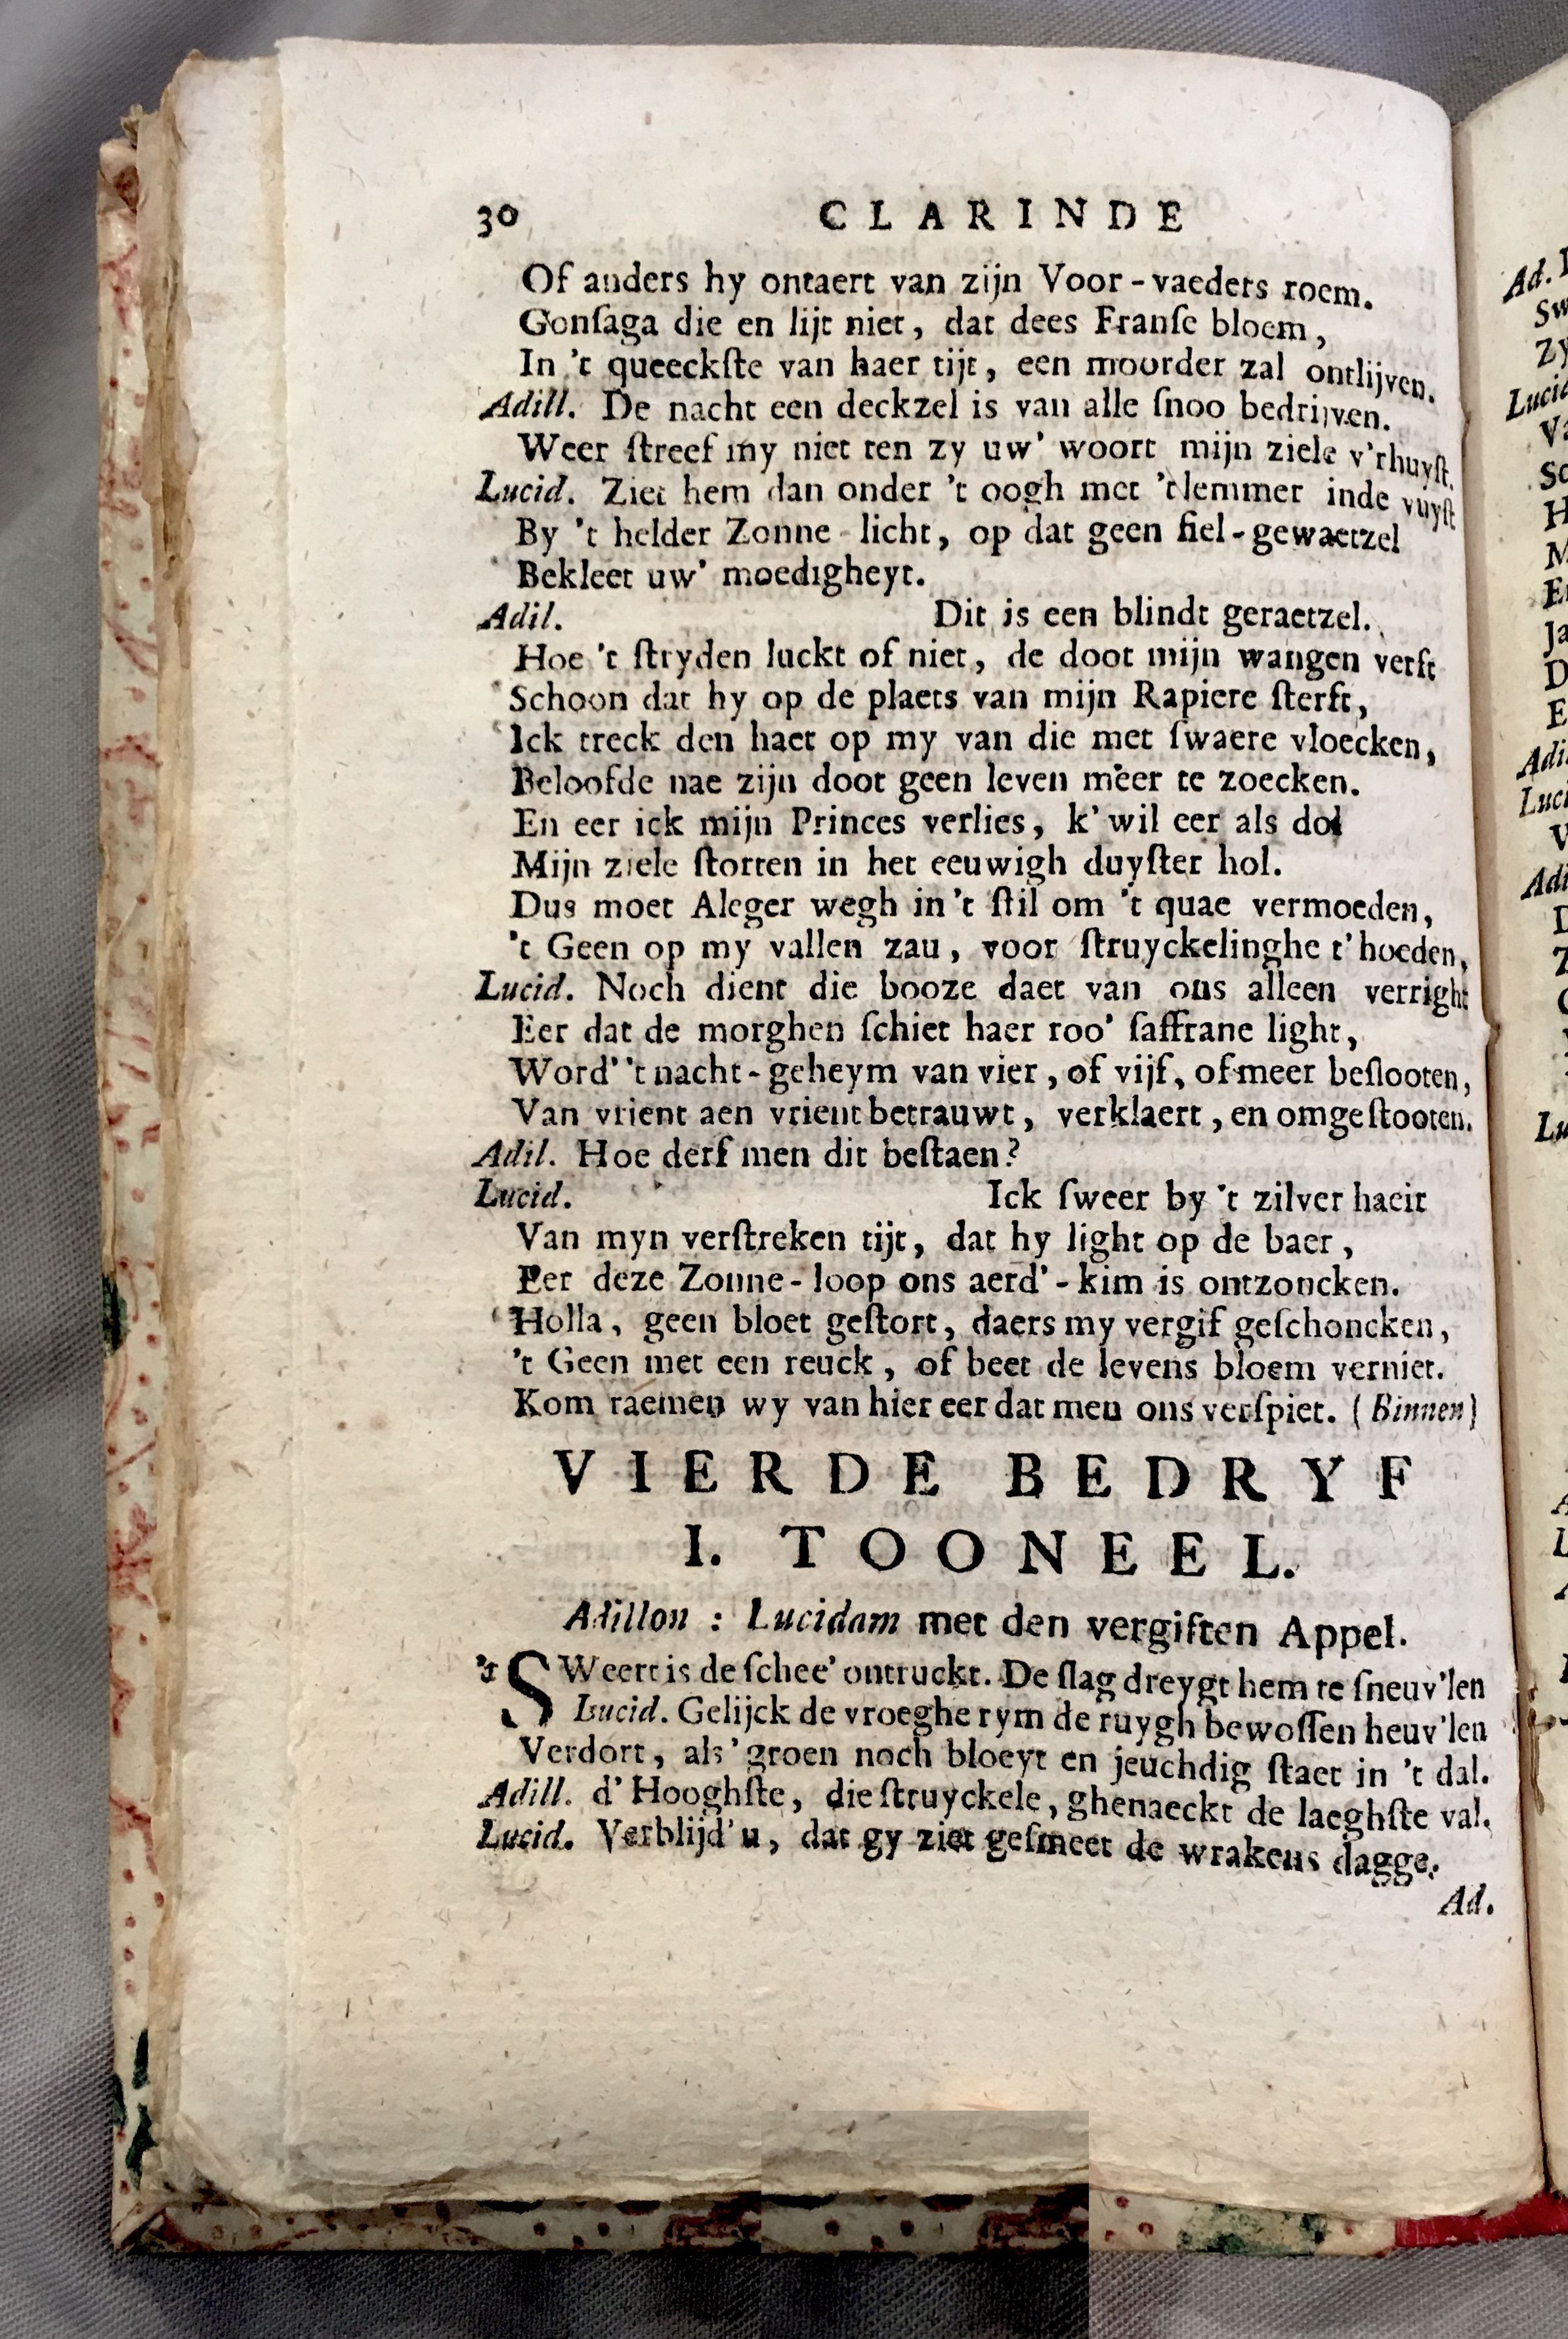 30 CLARINDE
Of anders hy ontaert van zijn Voor-vaeders roem.
Gonſaga die en lijt niet, dat dees Franſe bloem,
In 't queeckſte van haer tijt, een moorder zal ontlijven.
Adill. De nacht een deckzel is van alle ſnoo bedrijven.
Weer ſtreef my niet ten zy uw' woort mijn ziele v'rhuyſt.
Lucid. Ziet hem dan onder 't oogh met 't lemmer inde vuyſt
By 't helder Zonne-licht, op dat geen fiel-gewaetzel
Bekleet uw' moedigheyt.
Adil. Dit is een blindt geraetzel.
Hoe 't ſtryden luckt of niet, de doot mijn wangen verft
Schoon dat hy op de plaets van mijn Rapiere ſterft,
Ick treck den haet op my van die met ſwaere vloecken,
Beloofde nae zijn doot geen leven meer te zoecken.
En eer ick mijn Princes verlies, k' wil eer als dol
Mijn ziele ſtorten in het eeuwigh duyſter hol.
Dus moet Aleger wegh in 't ſtil om 't quae vermoeden,
't Geen op my vallen zau, voor ſtruyckelinghe t' hoeden,
Lucid. Noch dient die booze daet van ons alleen verright
Eer dat de morghen ſchiet haer roo' ſaffrane light,
Word' 't nacht-geheym van vier, of vijf, of meer beſlooten,
Van vrient aen vrient betrauwt, verklaert, en omgeſtooten.
Adil. Hoe derf men dit beſtaen?
Lucid. Ick ſweer by 't zilver haeir
Van myn verſtreken tijt, dat hy light op de baer,
Eer deze Zonne-loop ons aerd'-kim is ontzoncken.
Holla, geen bloet geſtort, daers my vergif geſchoncken,
't Geen met een reuck, of beet de levens bloem verniet.
Kom raemen wy van hier eer dat men ons verſpiet. (Binnen)
VIERDE BEDRYF
I. TOONEEL.
Adillon : Lucidam met den vergiften Appel.
't SWeert is de ſchee' ontruckt. De ſlag dreygt hem te ſneuv'len
Lucid. Gelijck de vroeghe rym de ruygh bewoſſen heuv'len
Verdort, als' groen noch bloeyt en jeuchdig ſtaet in 't dal.
Adill. d' Hooghſte, die ſtruyckele, ghenaeckt de laeghſte val.
Lucid. Verblijd' u, dat gy ziet geſmeet de wrakens dagge.
Ad.